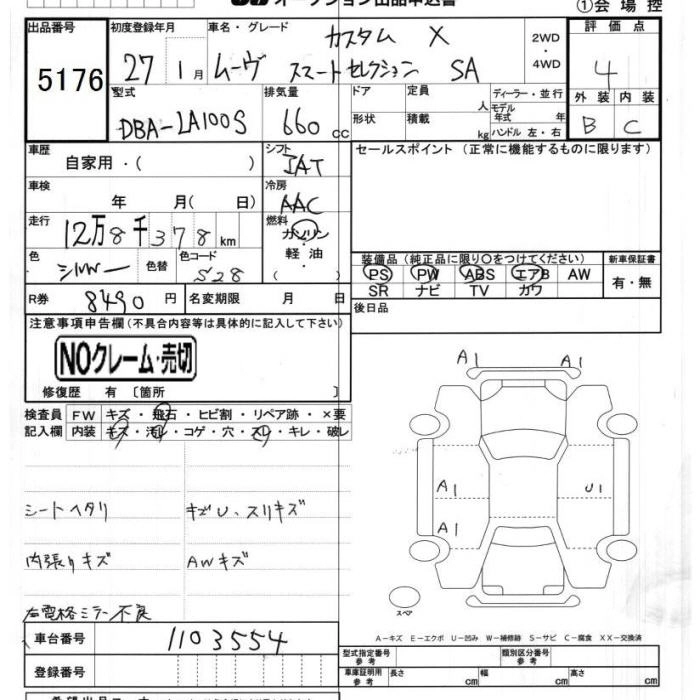 オークション出品申込書
①会場控
出品番号 初度登録年月 車名・グレード 評価点
5176 27 1月 ムーヴ カスタム X スマートセレクション SA 2WD・4WD 4
外装 内装
B C
型式 排気量 ドア 定員 人 ディーラー・並行
DBA-LA100S 660 cc 形状 積載 kg モデル年式 年 ハンドル 左・右
車歴 自家用・( ) シフト IAT セールスポイント (正常に機能するものに限ります)
車検 年 月( 日) 冷房 AAC
走行 12万8千378km 燃料 ガソリン・軽油・( )
色 シルバー 色替 色コード S28
装備品 (純正品に限り○をつけてください) 新車保証書
PS PW ABS エアB AW 有・無
SR ナビ TV カワ
R券 8490円 名変期限 月 日 後日品
注意事項申告欄(不具合内容等は具体的に記入して下さい)
NOクレーム・売切
修復歴 有 〔箇所 〕
検査員 FW キズ・飛石・ヒビ割・リペア跡・×要
記入欄 内装 キズ・汚れ・コゲ・穴・スレ・キレ・破レ
A1 A1
A1 U1
A1
シートヘタリ キズU、スリキズ
内張りキズ AWキズ
右電格ミラー不良
スペア
A-キズ E-エクボ U-凹み W-補修跡 S-サビ C-腐食 XX-交換済
車台番号 1103554
型式指定番号 参考 類別区分番号 参考
登録番号 車庫証明用 参考 長さ cm 幅 cm 高さ cm